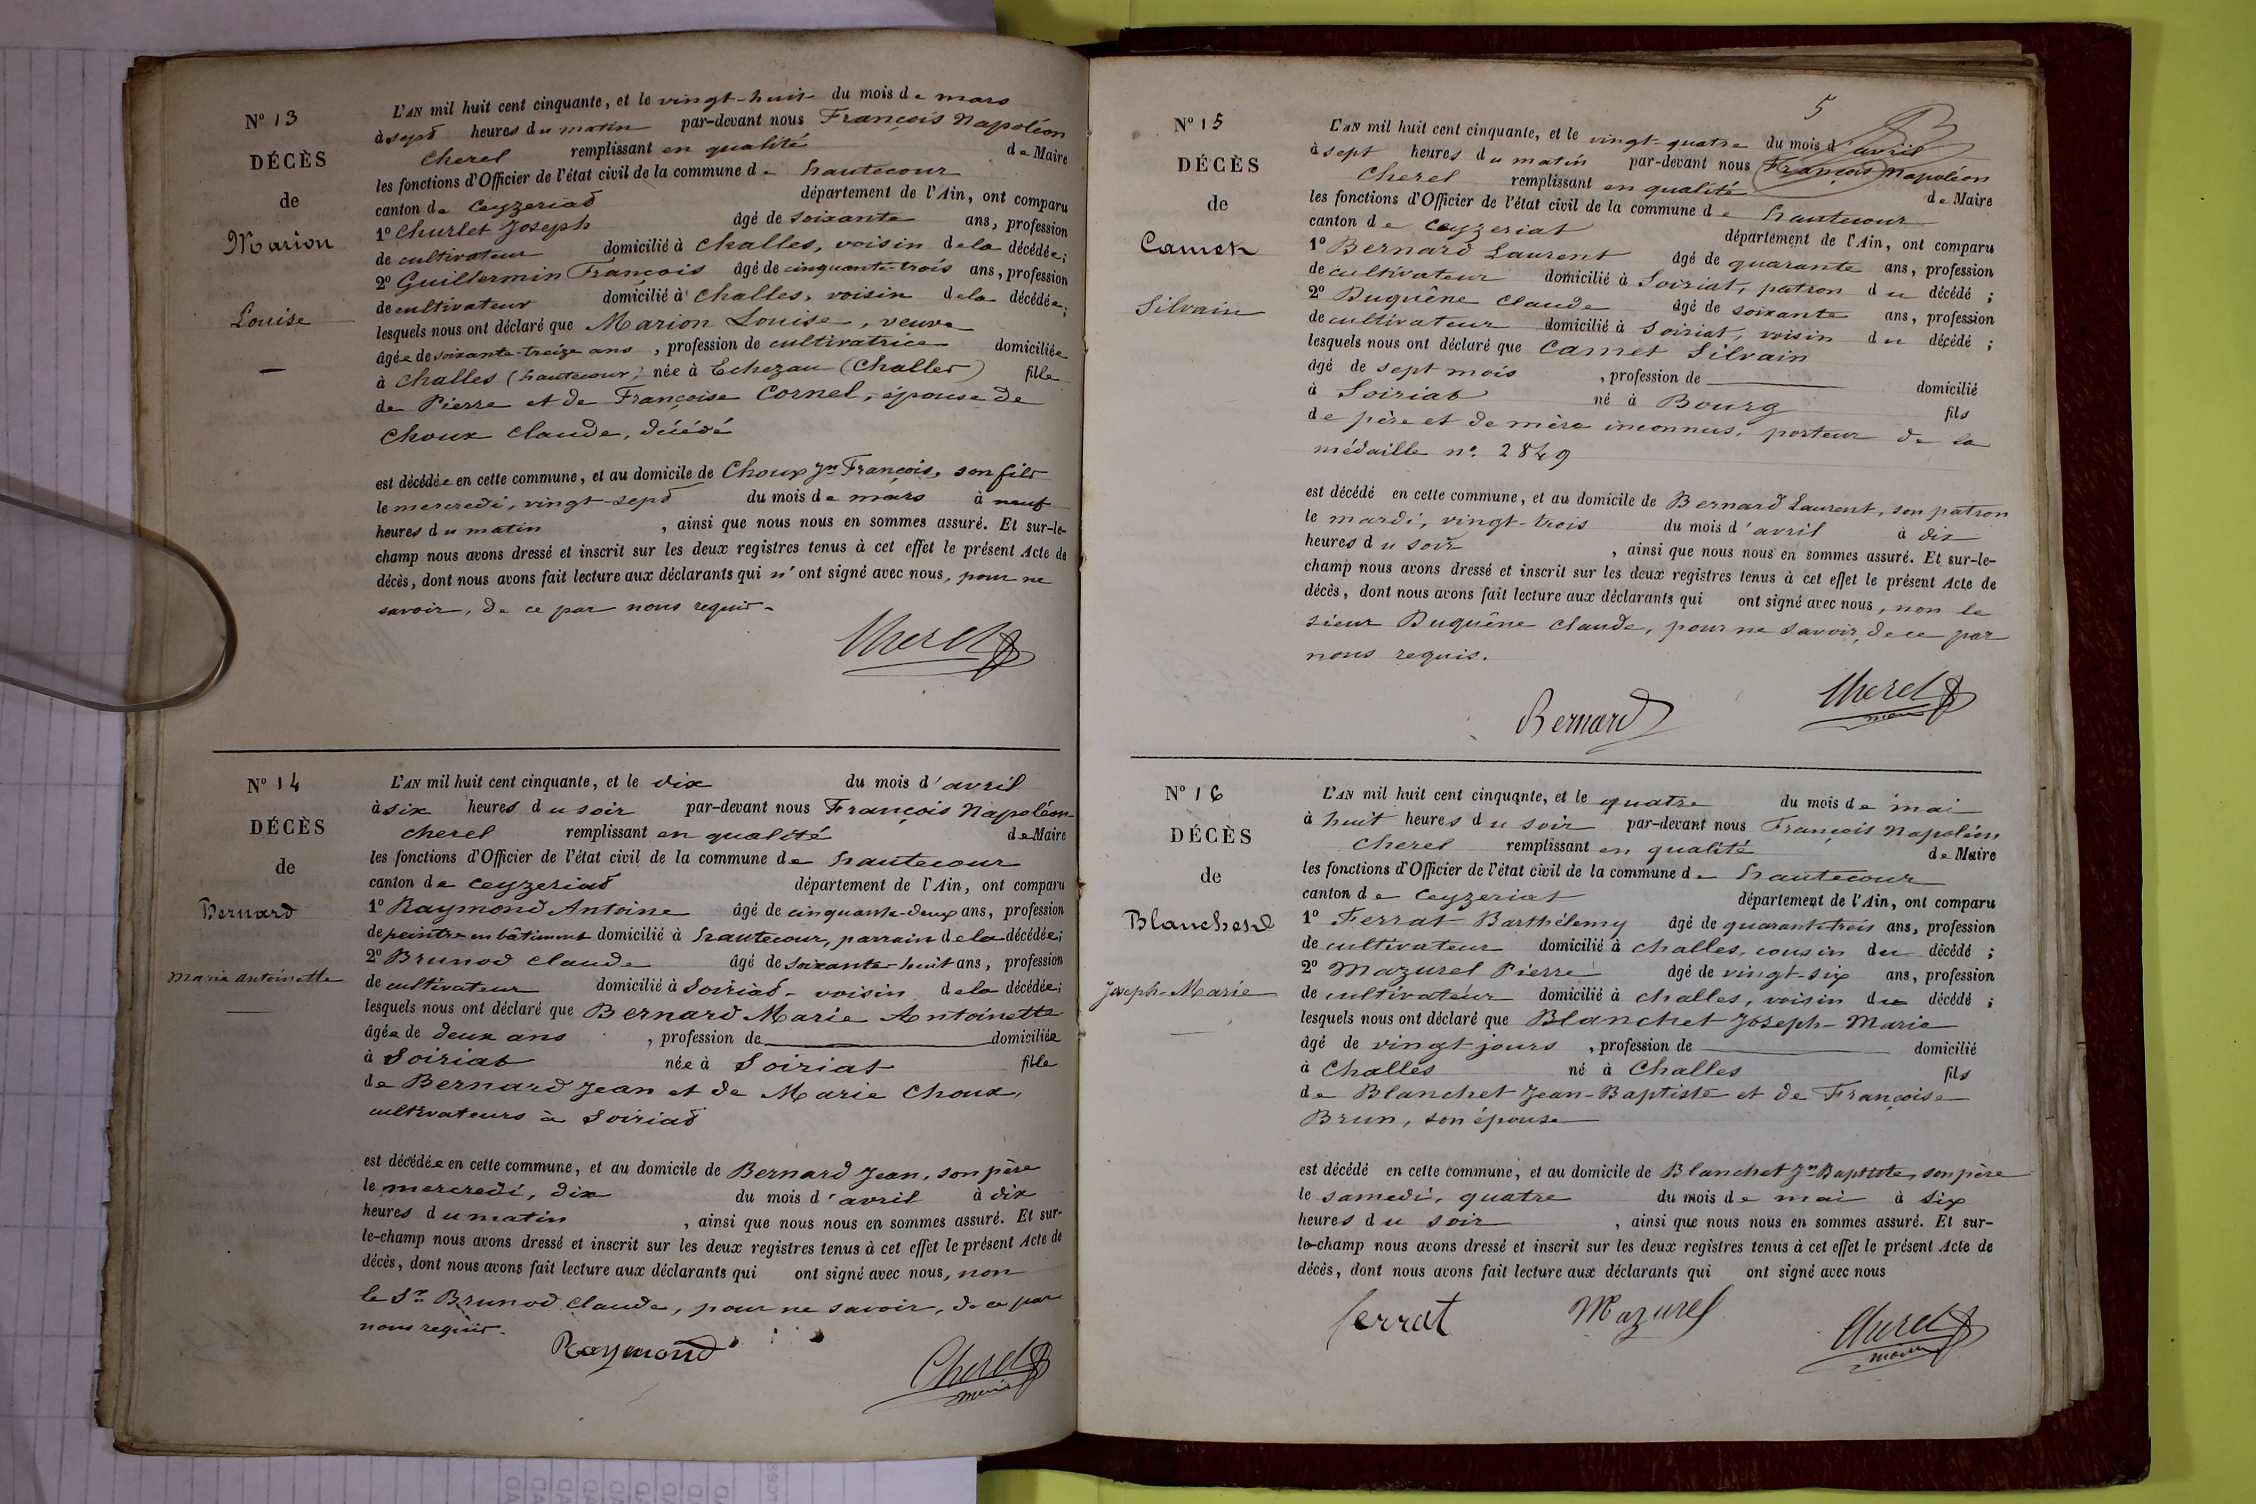 N° 13
DÉCÈS
de
Marion
Louise
L'AN mil huit cent cinquante, et le vingt-huit du mois de mars
à sept heures du matin par-devant nous François Napoléon
Cherel remplissant en qualité de Maire
les fonctions d'Officier de l'état civil de la commune de hautecour
canton de Ceyzeriat département de l'Ain, ont comparu
1° Churlet Joseph âgé de soixante ans, profession
de cultivateur domicilié à Challes, voisin de la décédée;
2° Guillermin François âgé de cinquante-trois ans, profession
de cultivateur domicilié à Challes, voisin de la décédée;
lesquels nous ont déclaré que Marion Louise, veuve
âgée de soixante-treize ans, profession de cultivatrice domiciliée
à Challes (hautecour) née à Echezau (Challes) fille
de Pierre et de Françoise Cornel, épouse de
Choux Claude, décédé
est décédée en cette commune, et au domicile de Choux Jn François, son fils
le mercredi, vingt-sept du mois de mars à neuf
heures du matin, ainsi que nous nous en sommes assuré. Et sur-le-
champ nous avons dressé et inscrit sur les deux registres tenus à cet effet le présent Acte de
décès, dont nous avons fait lecture aux déclarants qui n'ont signé avec nous, pour ne
savoir, de ce par nous requis.
Cherel
N° 14
DÉCÈS
de
Bernard
Marie Antoinette
L'AN mil huit cent cinquante, et le dix du mois d'avril
à six heures du soir par-devant nous François Napoléon
Cherel remplissant en qualité de Maire
les fonctions d'Officier de l'état civil de la commune de hautecour
canton de Ceyzeriat département de l'Ain, ont comparu
1° Raymond Antoine âgé de cinquante-deux ans, profession
de peintre en bâtiment domicilié à hautecour, parrain de la décédée;
2° Brunod Claude âgé de soixante-huit ans, profession
de cultivateur domicilié à Soiriat - voisin de la décédée;
lesquels nous ont déclaré que Bernard Marie Antoinette
âgée de deux ans, profession de domiciliée
à Soiriat née à Soiriat fille
de Bernard Jean et de Marie Choux,
cultivateurs à Soiriat
est décédée en cette commune, et au domicile de Bernard Jean, son père
le mercredi, dix du mois d'avril à dix
heures du matin, ainsi que nous nous en sommes assuré. Et sur-
le-champ nous avons dressé et inscrit sur les deux registres tenus à cet effet le présent Acte de
décès, dont nous avons fait lecture aux déclarants qui ont signé avec nous, non
le Sr Brunod Claude, pour ne savoir, de ce par
nous requis.
Raymond
Cherel
maire
5
N° 15
DÉCÈS
de
Camet
Silvain
L'AN mil huit cent cinquante, et le vingt-quatre du mois d'avril
à sept heures du matin par-devant nous François Napoléon
Cherel remplissant en qualité de Maire
les fonctions d'Officier de l'état civil de la commune de hautecour
canton de Ceyzeriat département de l'Ain, ont comparu
1° Bernard Laurent âgé de quarante ans, profession
de cultivateur domicilié à Soiriat, patron du décédé;
2° Buquêne Claude âgé de soixante ans, profession
de cultivateur domicilié à Soiriat, voisin du décédé;
lesquels nous ont déclaré que Camet Silvain
âgé de sept mois, profession de domicilié
à Soiriat né à Bourg fils
de père et de mère inconnus, porteur de la
médaille n° 2849
est décédé en cette commune, et au domicile de Bernard Laurent, son patron
le mardi, vingt-trois du mois d'avril à dix
heures du soir, ainsi que nous nous en sommes assuré. Et sur-le-
champ nous avons dressé et inscrit sur les deux registres tenus à cet effet le présent Acte de
décès, dont nous avons fait lecture aux déclarants qui ont signé avec nous, non le
sieur Buquêne Claude, pour ne savoir, de ce par
nous requis.
Bernard
Cherel
maire
N° 16
DÉCÈS
de
Blanchet
Joseph-Marie
L'AN mil huit cent cinquante, et le quatre du mois de mai
à huit heures du soir par-devant nous François Napoléon
Cherel remplissant en qualité de Maire
les fonctions d'Officier de l'état civil de la commune de hautecour
canton de Ceyzeriat département de l'Ain, ont comparu
1° Ferrat Barthélemy âgé de quarante-trois ans, profession
de cultivateur domicilié à Challes, cousin du décédé;
2° Mazurel Pierre âgé de vingt-six ans, profession
de cultivateur domicilié à Challes, voisin du décédé;
lesquels nous ont déclaré que Blanchet Joseph-Marie
âgé de vingt jours, profession de domicilié
à Challes né à Challes fils
de Blanchet Jean-Baptiste et de Françoise
Brun, son épouse
est décédé en cette commune, et au domicile de Blanchet Jn Baptiste, son père
le samedi, quatre du mois de mai à six
heures du soir, ainsi que nous nous en sommes assuré. Et sur-
le-champ nous avons dressé et inscrit sur les deux registres tenus à cet effet le présent Acte de
décès, dont nous avons fait lecture aux déclarants qui ont signé avec nous
ferrat
Mazurel
Cherel
maire